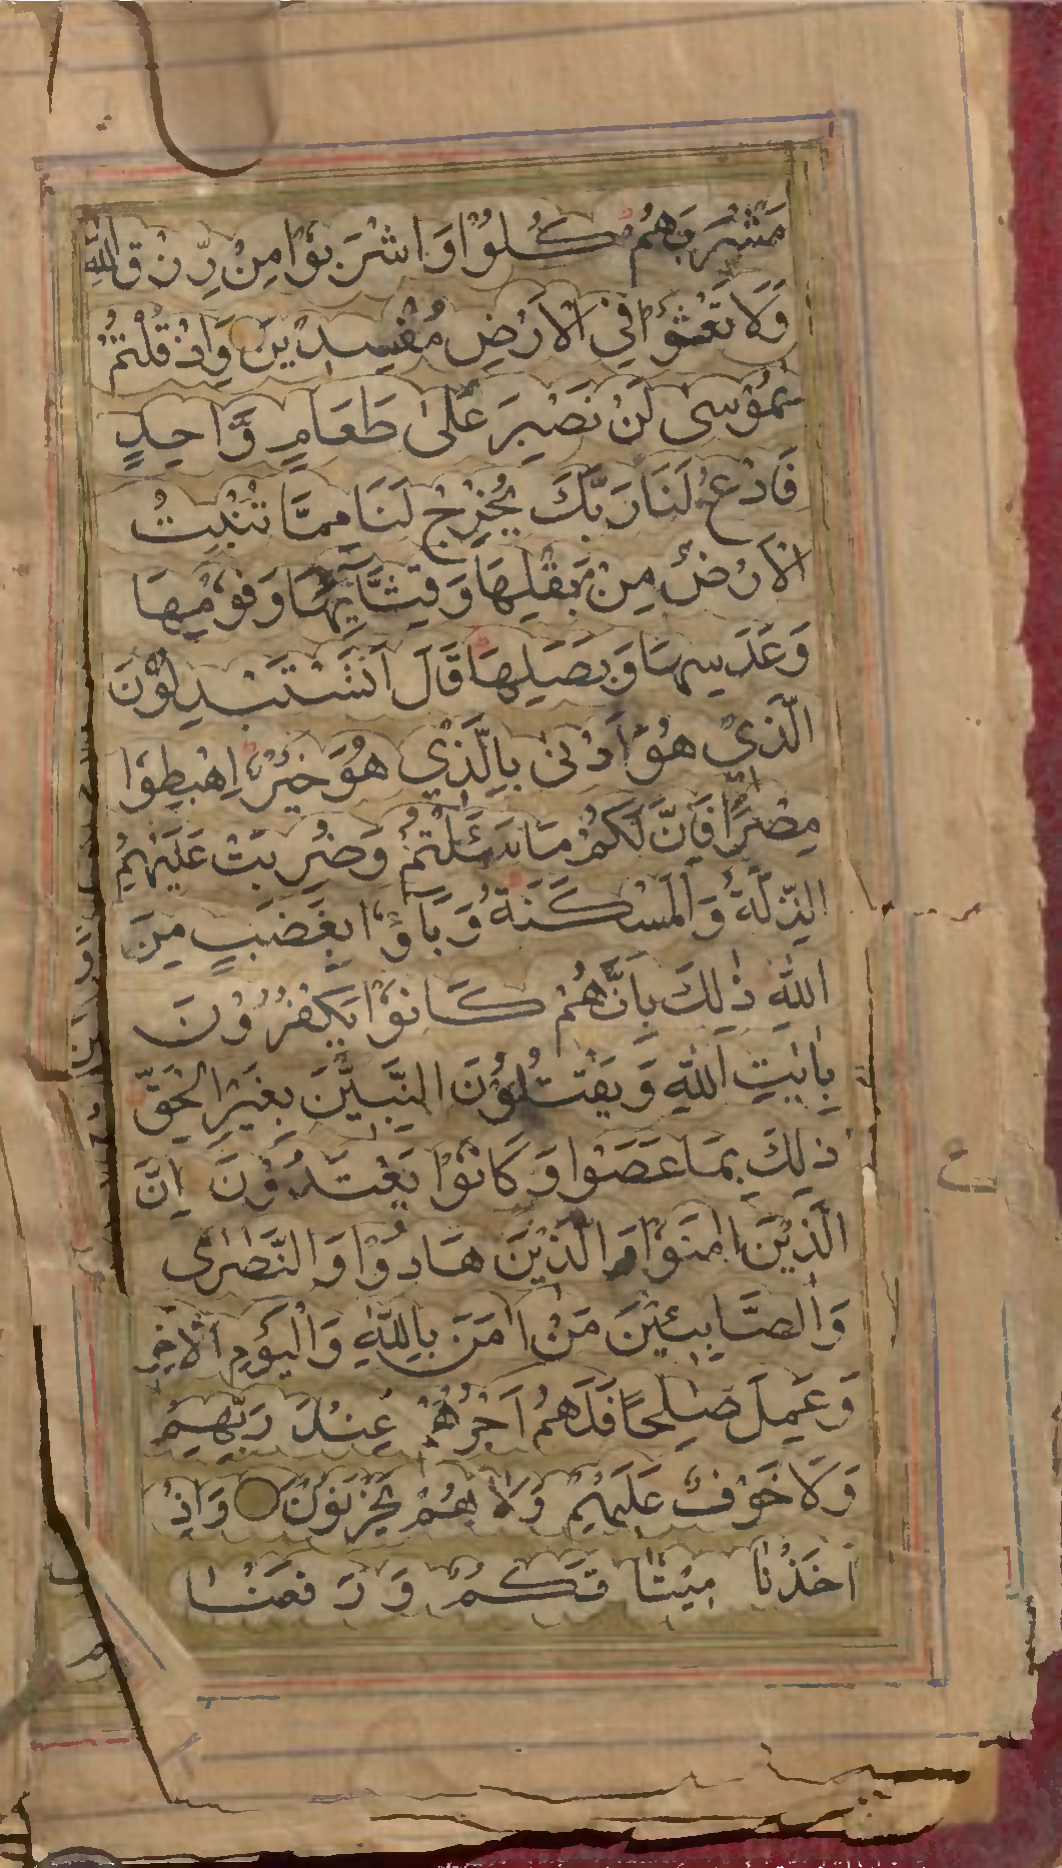 مَشْرَبَهُمْ كُلُوْا وَاشْرَبُوْا مِنْ رِّزْقِ اللّٰهِ
وَلَا تَعْثَوْا فِي الْاَرْضِ مُفْسِدِيْنَ وَاِذْ قُلْتُمْ
يٰمُوْسٰى لَنْ نَصْبِرَ عَلٰى طَعَامٍ وَّاحِدٍ
فَادْعُ لَنَا رَبَّكَ يُخْرِجْ لَنَا مِمَّا تُنْبِتُ
الْاَرْضُ مِنْ بَقْلِهَا وَقِثَّآئِهَا وَفُوْمِهَا
وَعَدَسِهَا وَبَصَلِهَا قَالَ اَتَسْتَبْدِلُوْنَ
الَّذِيْ هُوَ اَدْنٰى بِالَّذِيْ هُوَ خَيْرٌ اِهْبِطُوْا
مِصْرًا فَاِنَّ لَكُمْ مَا سَئَلْتُمْ وَضُرِبَتْ عَلَيْهِمُ
الذِّلَّةُ وَالْمَسْكَنَةُ وَبَآؤُا بِغَضَبٍ مِنَ
اللّٰهِ ذٰلِكَ بِاَنَّهُمْ كَانُوْا يَكْفُرُوْنَ
بِاٰيٰتِ اللّٰهِ وَيَقْتُلُوْنَ النَّبِيّٖنَ بِغَيْرِ الْحَقِّ
ذٰلِكَ بِمَا عَصَوْا وَكَانُوْا يَعْتَدُوْنَ اِنَّ
الَّذِيْنَ اٰمَنُوْا وَالَّذِيْنَ هَادُوْا وَالنَّصٰرٰى
وَالصَّابِئِيْنَ مَنْ اٰمَنَ بِاللّٰهِ وَالْيَوْمِ الْاٰخِرِ
وَعَمِلَ صَالِحًا فَلَهُمْ اَجْرُهُمْ عِنْدَ رَبِّهِمْ
وَلَا خَوْفٌ عَلَيْهِمْ وَلَا هُمْ يَحْزَنُوْنَ وَاِذْ
اَخَذْنَا مِيْثَاقَكُمْ وَرَفَعْنَا